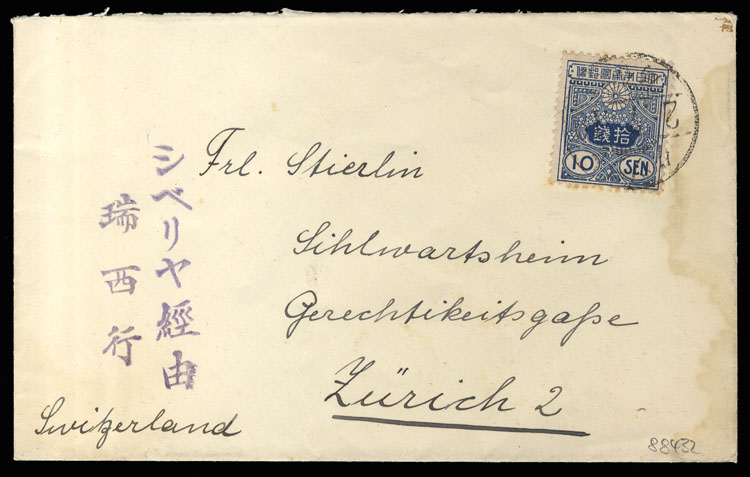 大日本帝國郵便
拾錢
10 SEN
乙
シベリヤ經由
瑞西行
Frl. Stierlin
Sihlwartsheim
Gerechtikeitsgaße
Zürich 2
Switzerland
88432